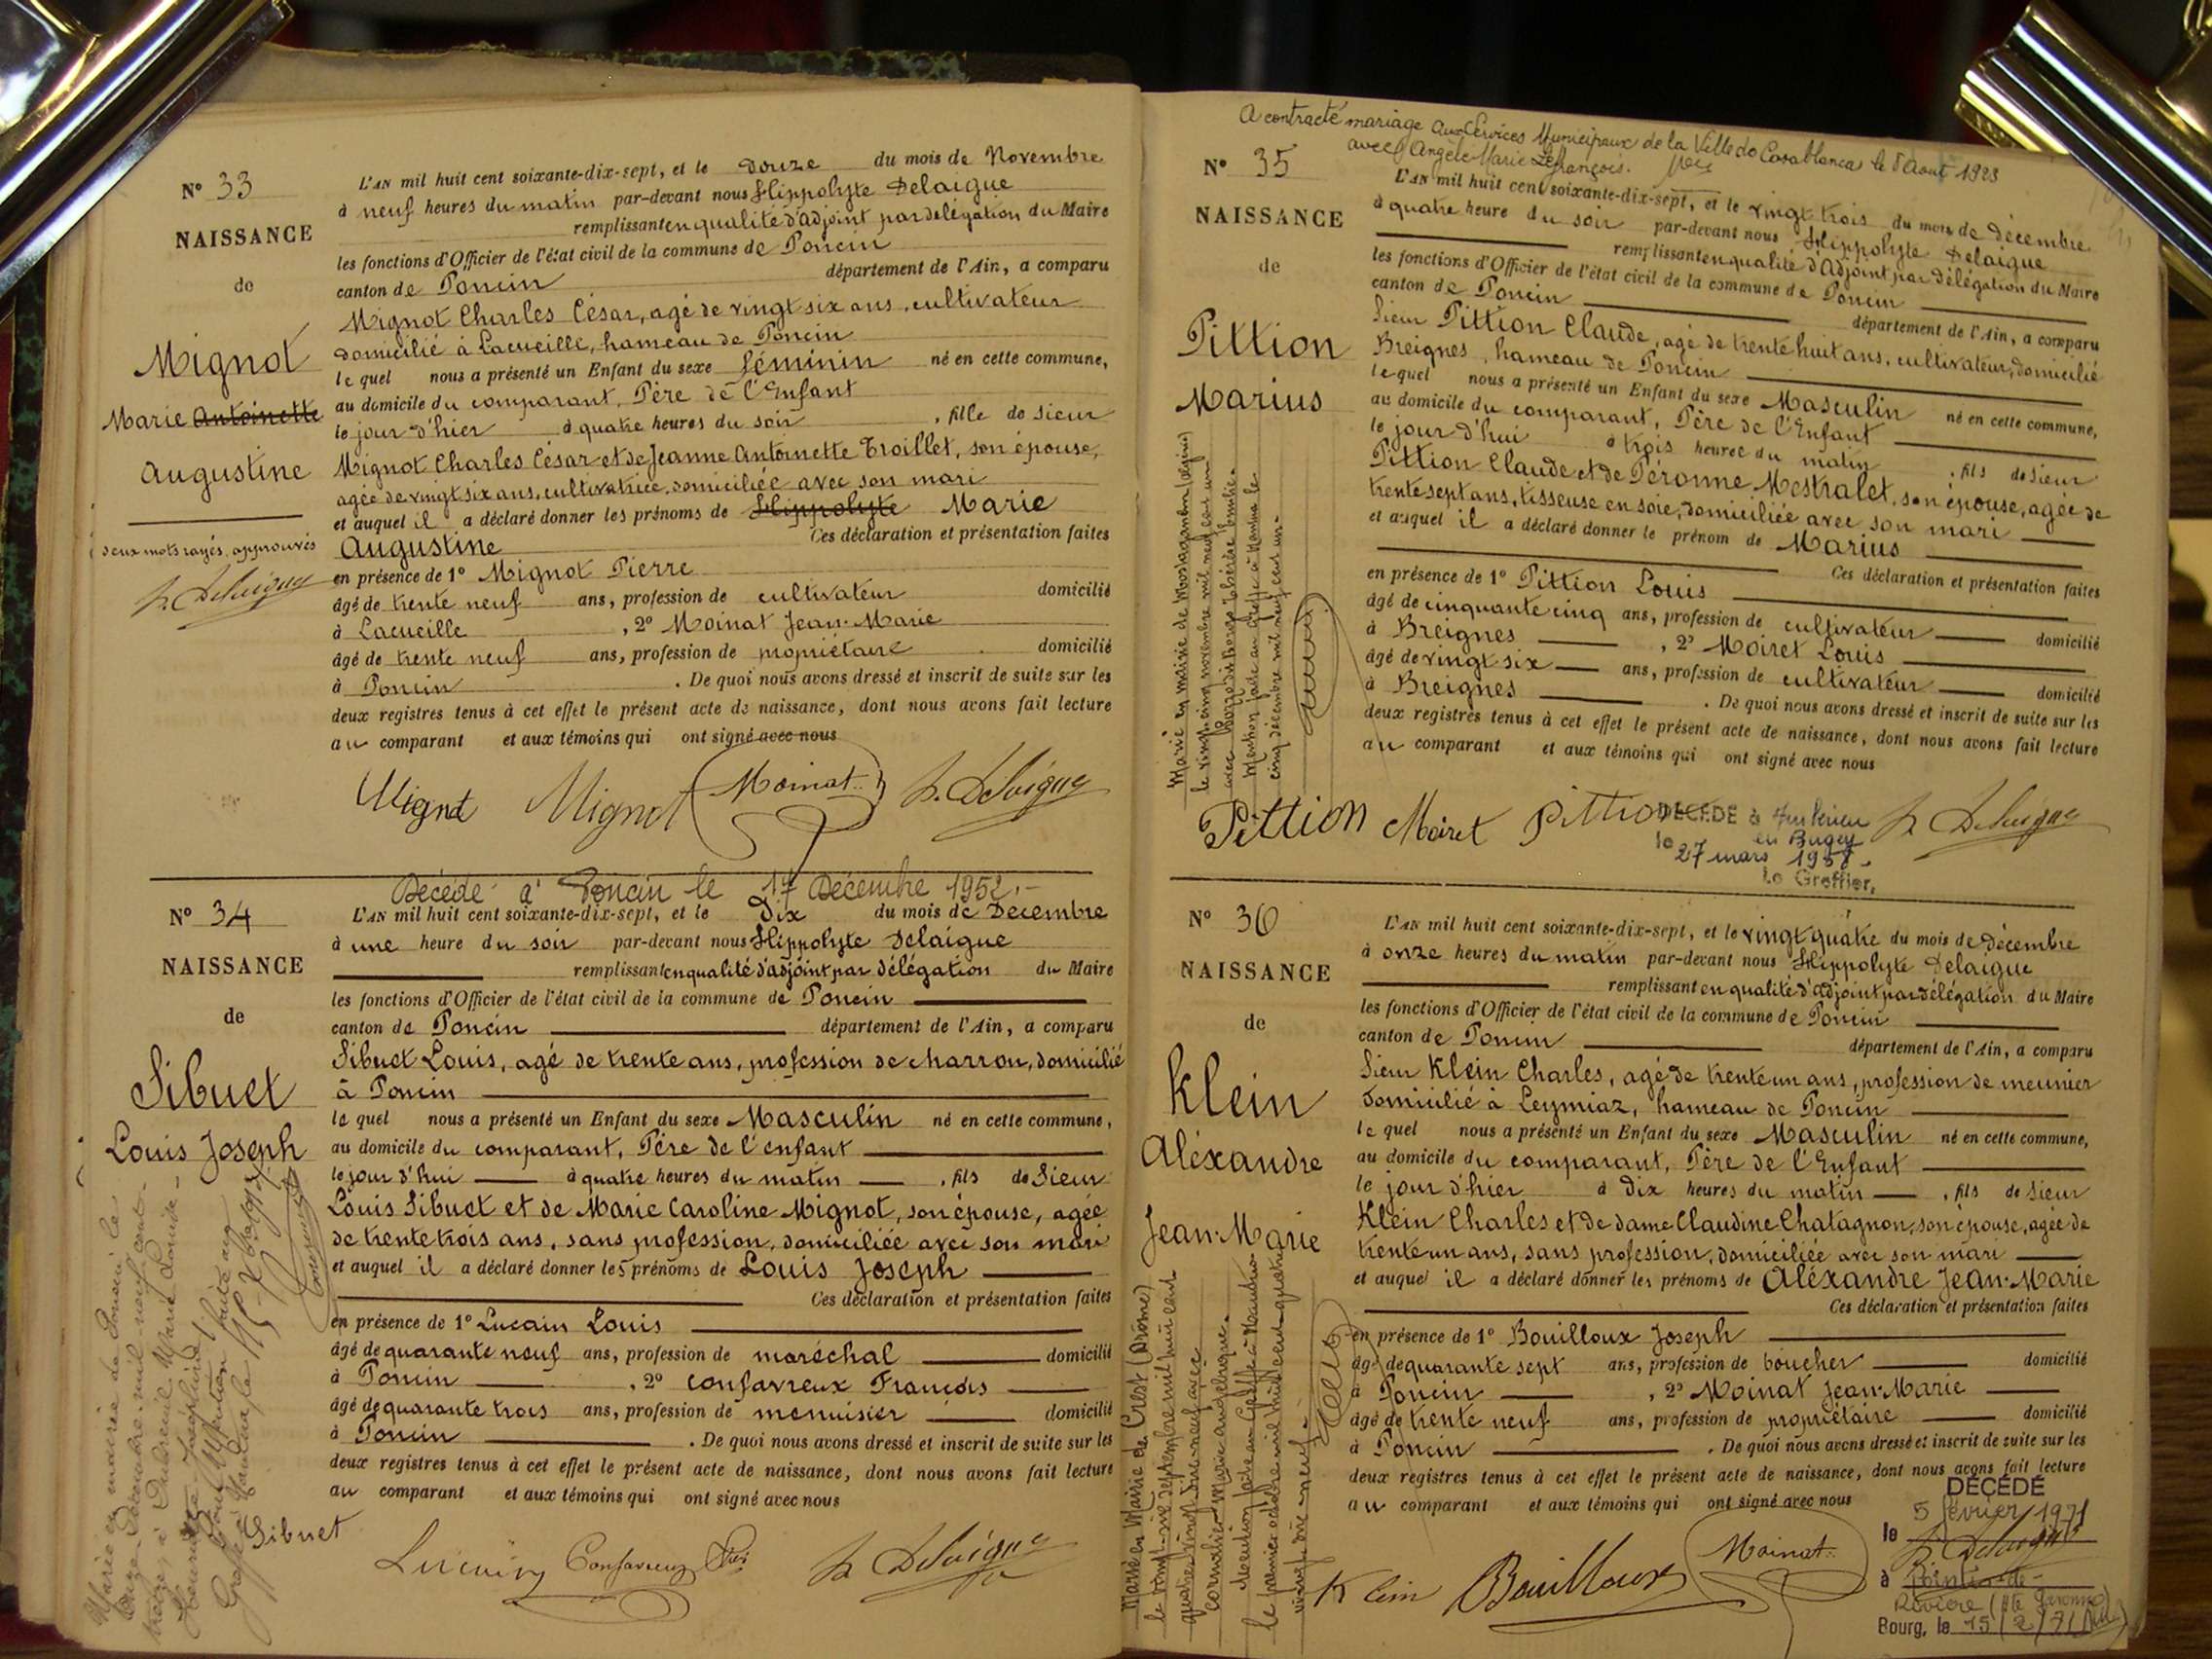 N° 33
NAISSANCE
de
Mignot
Marie Antoinette
Augustine
deux mots rayés approuvés
h. Delaigue
L'AN mil huit cent soixante-dix-sept, et le douze du mois de Novembre
à neuf heures du matin par-devant nous Hippolyte Delaigue
remplissant en qualité d'adjoint par délégation du Maire
les fonctions d'Officier de l'état civil de la commune de Poncin
canton de Poncin département de l'Ain, a comparu
Mignot Charles César, agé de vingt six ans, cultivateur
domicilié à Lacueille, hameau de Poncin
le quel nous a présenté un Enfant du sexe féminin né en cette commune,
au domicile du comparant, Père de l'Enfant
le jour d'hier à quatre heures du soir, fille de Sieur
Mignot Charles César et de Jeanne Antoinette Troillet, son épouse,
agée de vingt six ans, cultivatrice, domiciliée avec son mari
et auquel il a déclaré donner les prénoms de Hippolyte Marie
Augustine Ces déclaration et présentation faites
en présence de 1° Mignot Pierre
âgé de trente neuf ans, profession de cultivateur domicilié
à Lacueille, 2° Moinat Jean-Marie
âgé de trente neuf ans, profession de propriétaire domicilié
à Poncin. De quoi nous avons dressé et inscrit de suite sur les
deux registres tenus à cet effet le présent acte de naissance, dont nous avons fait lecture
au comparant et aux témoins qui ont signé avec nous
Mignot Mignot Moinat h. Delaigue
Décédé à Poncin le 17 Décembre 1952.-
N° 34
NAISSANCE
de
Sibuet
Louis Joseph
L'AN mil huit cent soixante-dix-sept, et le Dix du mois de Décembre
à une heure du soir par-devant nous Hippolyte Delaigue
remplissant en qualité d'adjoint par délégation du Maire
les fonctions d'Officier de l'état civil de la commune de Poncin
canton de Poncin département de l'Ain, a comparu
Sibuet Louis, agé de trente ans, profession de charron, domicilié
à Poncin
le quel nous a présenté un Enfant du sexe Masculin né en cette commune,
au domicile du comparant, Père de l'enfant
le jour d'hui à quatre heures du matin, fils de Sieur
Louis Sibuet et de Marie Caroline Mignot, son épouse, agée
de trente trois ans, sans profession, domiciliée avec son mari
et auquel il a déclaré donner les prénoms de Louis Joseph
Ces déclaration et présentation faites
en présence de 1° Lucain Louis
âgé de quarante neuf ans, profession de maréchal domicilié
à Poncin, 2° Confavreux François
âgé de quarante trois ans, profession de menuisier domicilié
à Poncin. De quoi nous avons dressé et inscrit de suite sur les
deux registres tenus à cet effet le présent acte de naissance, dont nous avons fait lecture
au comparant et aux témoins qui ont signé avec nous
Sibuet Lucain Confavreux h. Delaigue
A contracté mariage aux Services Municipaux de la Ville de Casablanca le 8 Aout 1923
avec Angèle Marie Lefrançois.
N° 35
NAISSANCE
de
Pittion
Marius
L'AN mil huit cent soixante-dix-sept, et le vingt trois du mois de décembre
à quatre heure du soir par-devant nous Hippolyte Delaigue
remplissant en qualité d'Adjoint par délégation du Maire
les fonctions d'Officier de l'état civil de la commune de Poncin
canton de Poncin département de l'Ain, a comparu
Sieur Pittion Claude, agé de trente huit ans, cultivateur, domicilié
Breignes, hameau de Poncin
lequel nous a présenté un Enfant du sexe Masculin né en cette commune,
au domicile du comparant, Père de l'Enfant
le jour d'hui à trois heures du matin, fils de Sieur
Pittion Claude et de Péronne Mestralet, son épouse, agée de
trente sept ans, tisseuse en soie, domiciliée avec son mari
et auquel il a déclaré donner le prénom de Marius
Ces déclaration et présentation faites
en présence de 1° Pittion Louis
âgé de cinquante cinq ans, profession de cultivateur domicilié
à Breignes, 2° Moiret Louis
âgé de vingt six ans, profession de cultivateur domicilié
à Breignes. De quoi nous avons dressé et inscrit de suite sur les
deux registres tenus à cet effet le présent acte de naissance, dont nous avons fait lecture
au comparant et aux témoins qui ont signé avec nous
Marié en mairie de Mostaganem (Algérie)
le vingt cinq novembre mil neuf cent un
Mention faite au Greffe à Nantua le
cinq décembre mil neuf cent un.
Pittion Moiret Pittion h. Delaigue
DÉCÉDÉ à Ambérieu
en Bugey
le 27 mars 1958.
Le Greffier,
N° 36
NAISSANCE
de
Klein
Aléxandre
Jean-Marie
L'AN mil huit cent soixante-dix-sept, et le vingt quatre du mois de décembre
à onze heures du matin par-devant nous Hippolyte Delaigue
remplissant en qualité d'adjoint par délégation du Maire
les fonctions d'Officier de l'état civil de la commune de Poncin
canton de Poncin département de l'Ain, a comparu
Sieur Klein Charles, agé de trente un ans, profession de meunier
domicilié à Leymiaz, hameau de Poncin
le quel nous a présenté un Enfant du sexe Masculin né en cette commune,
au domicile du comparant, Père de l'Enfant
le jour d'hier à dix heures du matin, fils de Sieur
Klein Charles et de dame Claudine Chatagnon, son épouse, agée de
trente un ans, sans profession, domiciliée avec son mari
et auquel il a déclaré donner les prénoms de Aléxandre Jean-Marie
Ces déclaration et présentation faites
en présence de 1° Bouilloux Joseph
âgé de quarante sept ans, profession de boucher domicilié
à Poncin, 2° Moinat Jean-Marie
âgé de trente neuf ans, profession de propriétaire domicilié
à Poncin. De quoi nous avons dressé et inscrit de suite sur les
deux registres tenus à cet effet le présent acte de naissance, dont nous avons fait lecture
au comparant et aux témoins qui ont signé avec nous
Marié en Mairie de Crest (Drôme)
Klein Bouilloux Moinat h. Delaigue
DÉCÉDÉ
le 5 février 1971
à Pointis-de-
Rivière (Hte Garonne)
Bourg, le 15/2/71